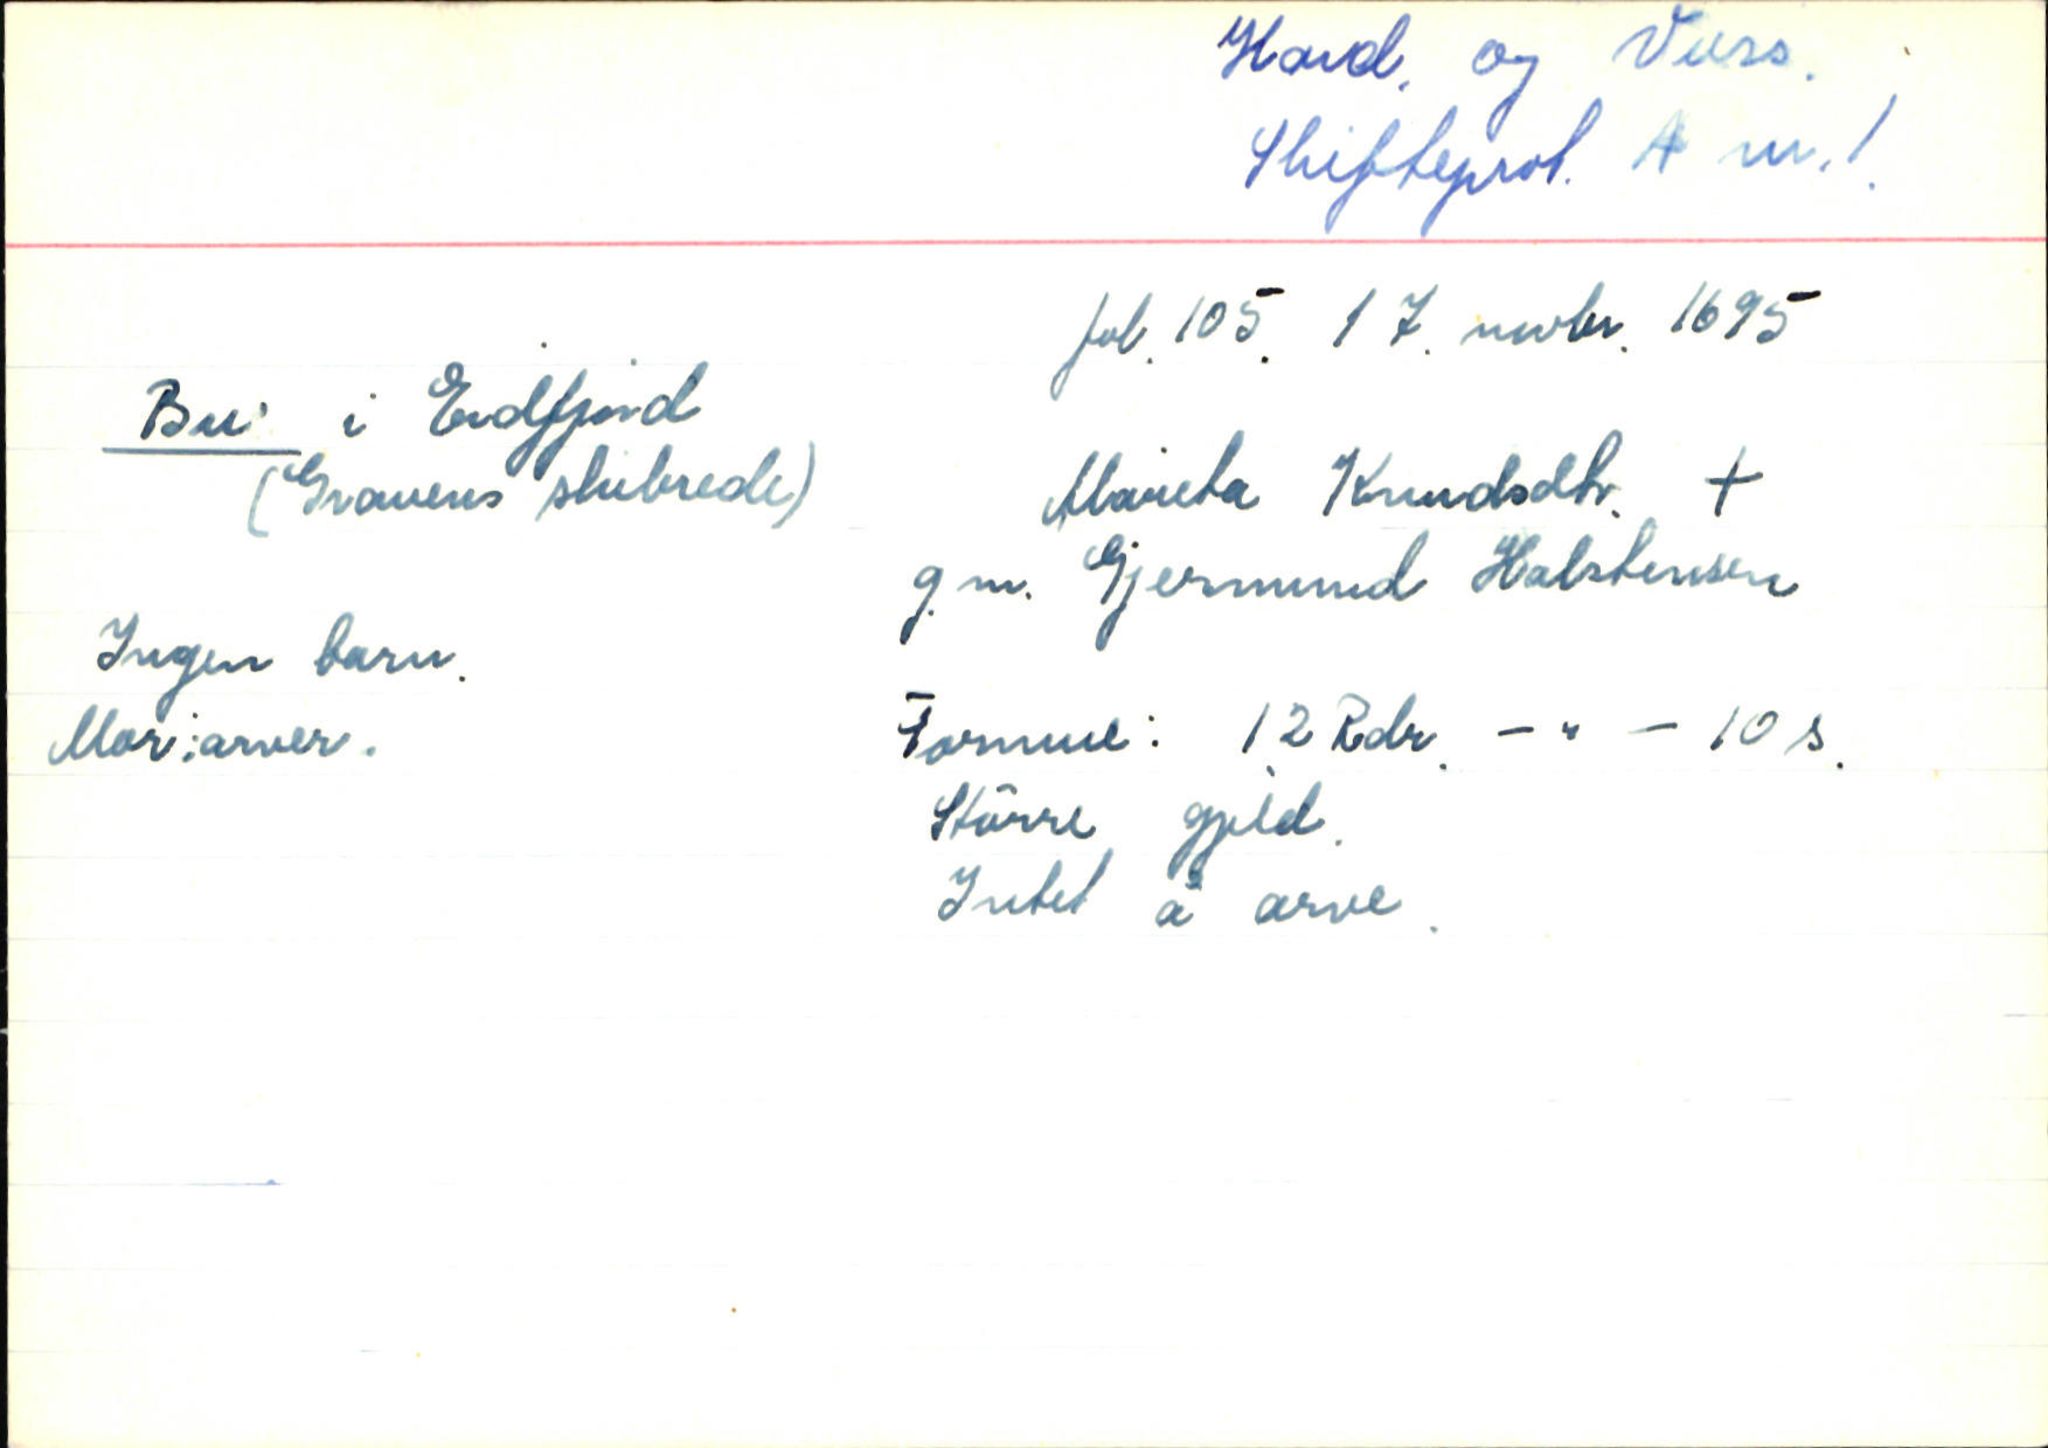 Hard. og Voss.
Skifteprot. A nr. 1.
fol. 105. 17. novbr. 1695
Bu i Eidfjord
(Gravens skibrede)
Marieta Knudsdtr. +
g.m. Gjermund Halstensen
Ingen barn.
Mor: arver.
Formue: 12 Rdr. - " - 10 s.
Större gjeld.
Intet å arve.